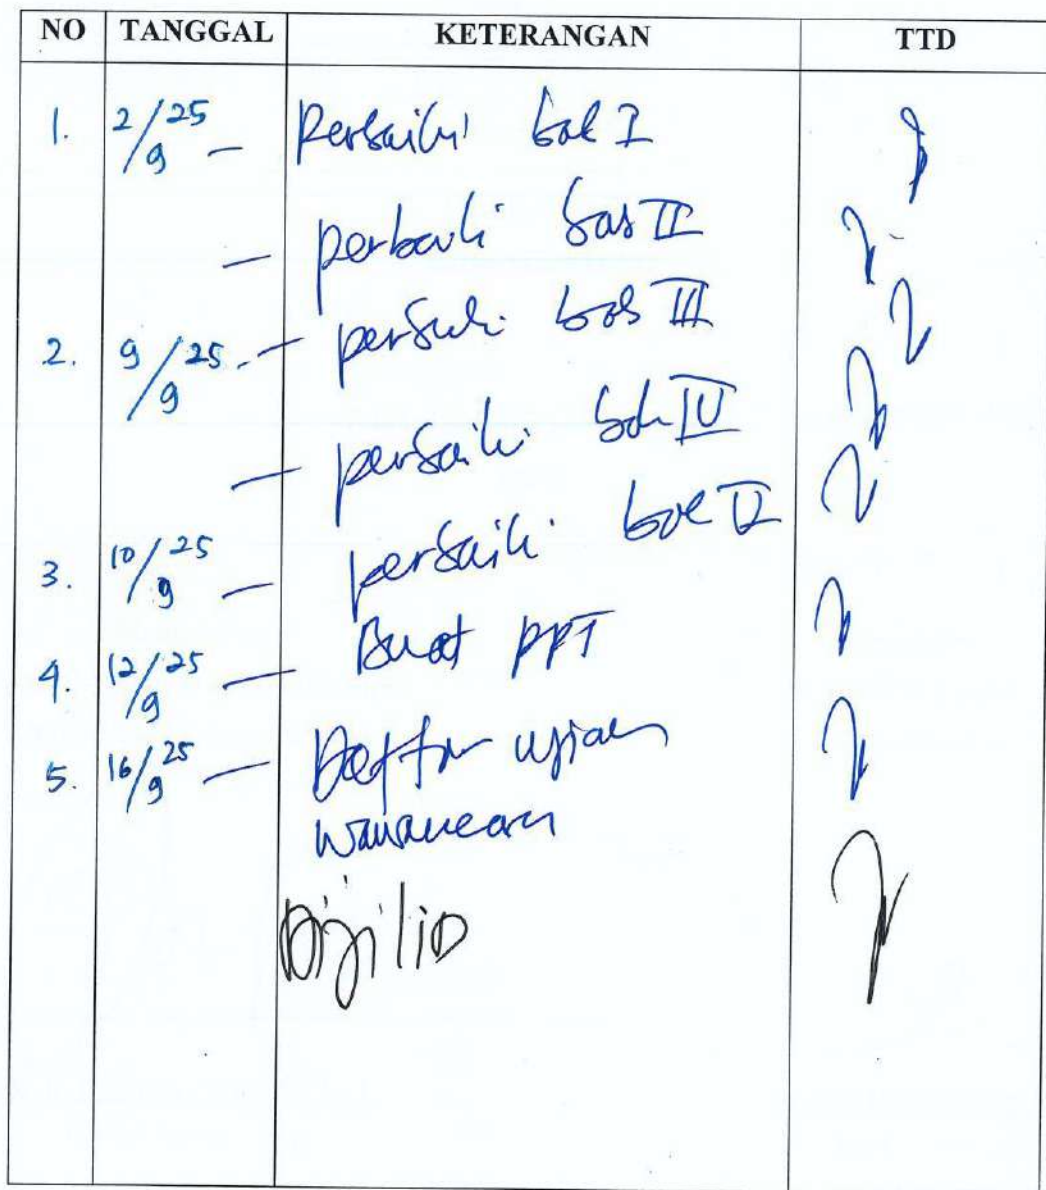 NO TANGGAL KETERANGAN TTD
1. 2/9 25 – Perbaiki bab I
– perbaiki bab II
2. 9/9 25 – perbaiki bab III
– perbaiki bab IV
3. 10/9 25 – perbaiki bab V
4. 12/9 25 – Buat PPT
5. 16/9 25 – Daftar ujian
wawancara